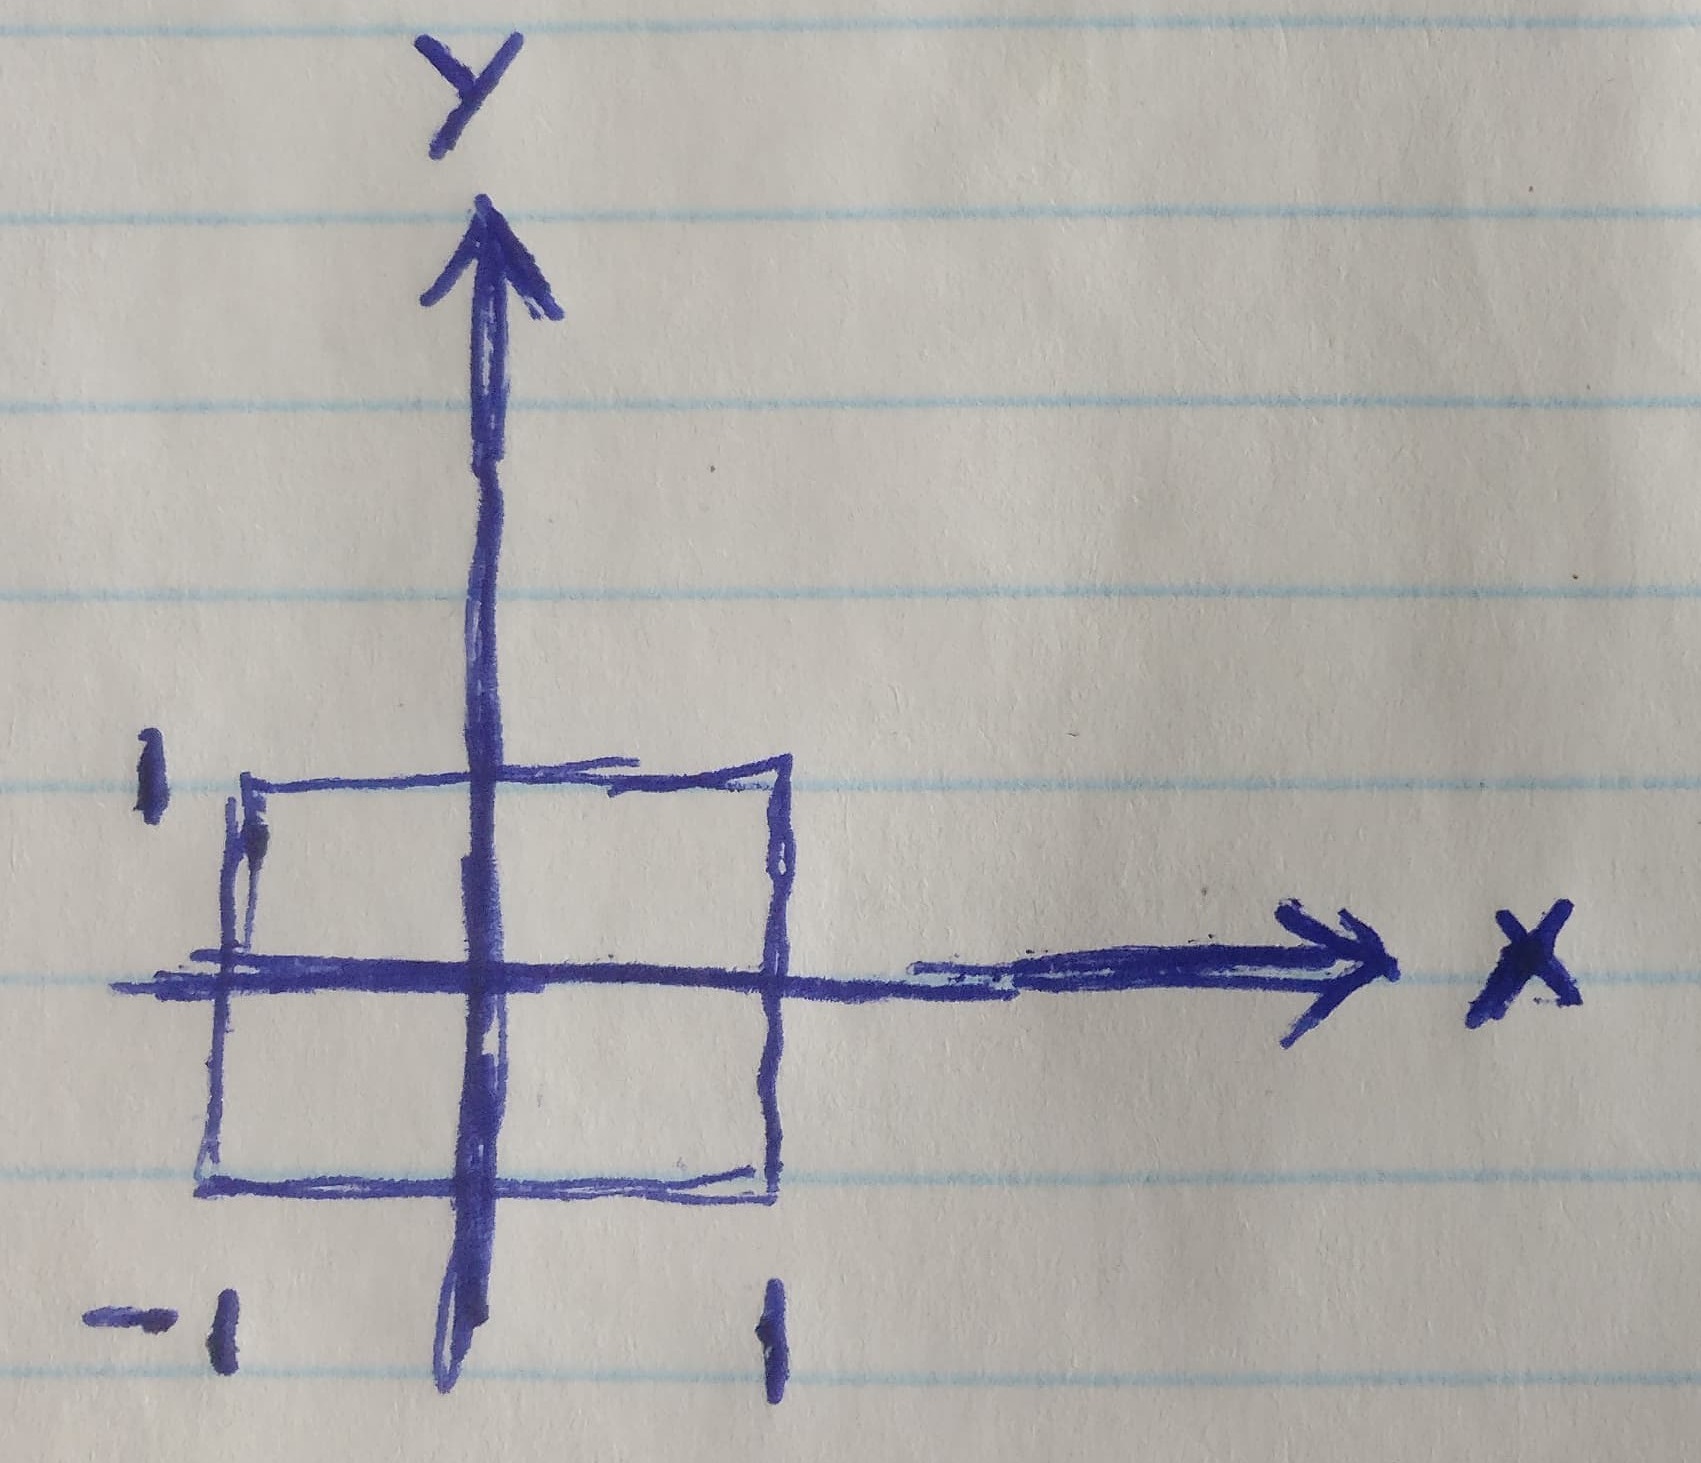 Y
1
X
-1 1